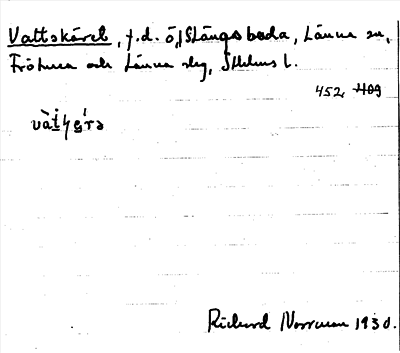 Vattskäret, f.d. ö, Stångsboda, Länna sn,
Frötuna och Länna slg, Sthlms l.
452, 409
Richard Norrman 1930.